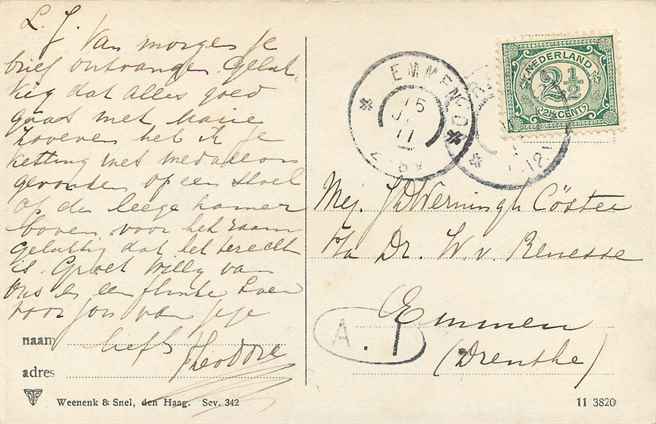 L. J. Van morgen je
brief ontvangen. Geluk-
kig dat alles goed
gaat met Marie
het ik je
ketting met medaillon
gevonden op een stoel
of de leege kamer
boven, voor het raam
Gelukkig dat het terecht
is. Groet Willy van
ons en een flinke zoen
voor jou van je
naam
liefh. Theodore
adres
Weenenk & Snel, den Haag. Sev. 342
EMMEN
15
11
NEDERLAND
2½
2½ CENT
Mej. J D Werningh Cöster
p/a Dr. W. v. Renesse
Emmen
(Drenthe)
A. 1
11 3820